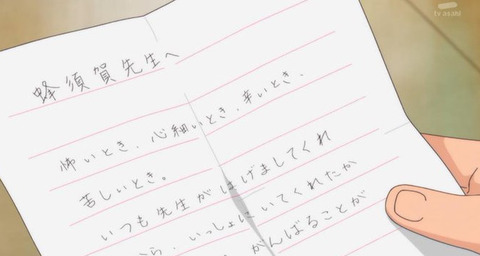 tv asahi
蜂須賀先生へ
怖いとき、心細いとき、辛いとき、
苦しいとき。
いつも先生がはげましてくれ
から、いっしょにいてくれたか
がんばることが